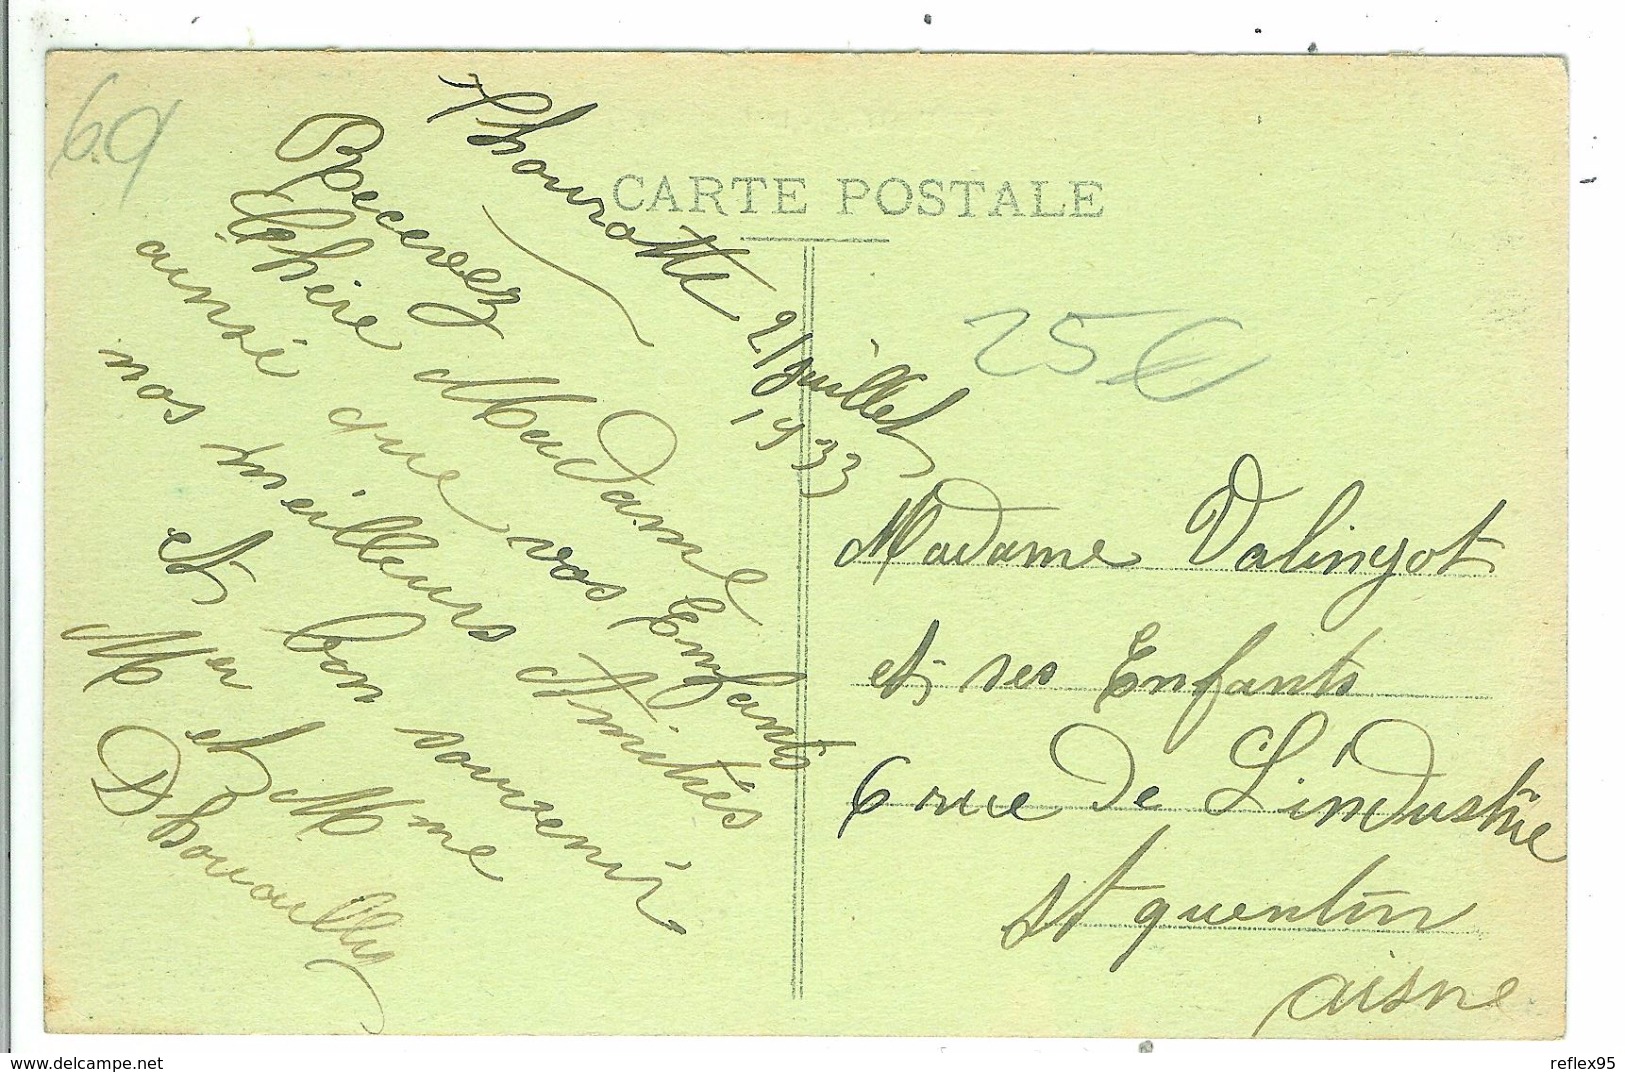 60
CARTE POSTALE
Thourotte 21 juillet
1933
Recevez
Chère Madame
ainsi que vos Enfants
nos meilleurs Amitiés
et bon souvenir
Mr et Mme
25€
Madame Valingot
et ses Enfants
6 rue de L'industrie
St quentin
aisne
delcampe.net
reflex95